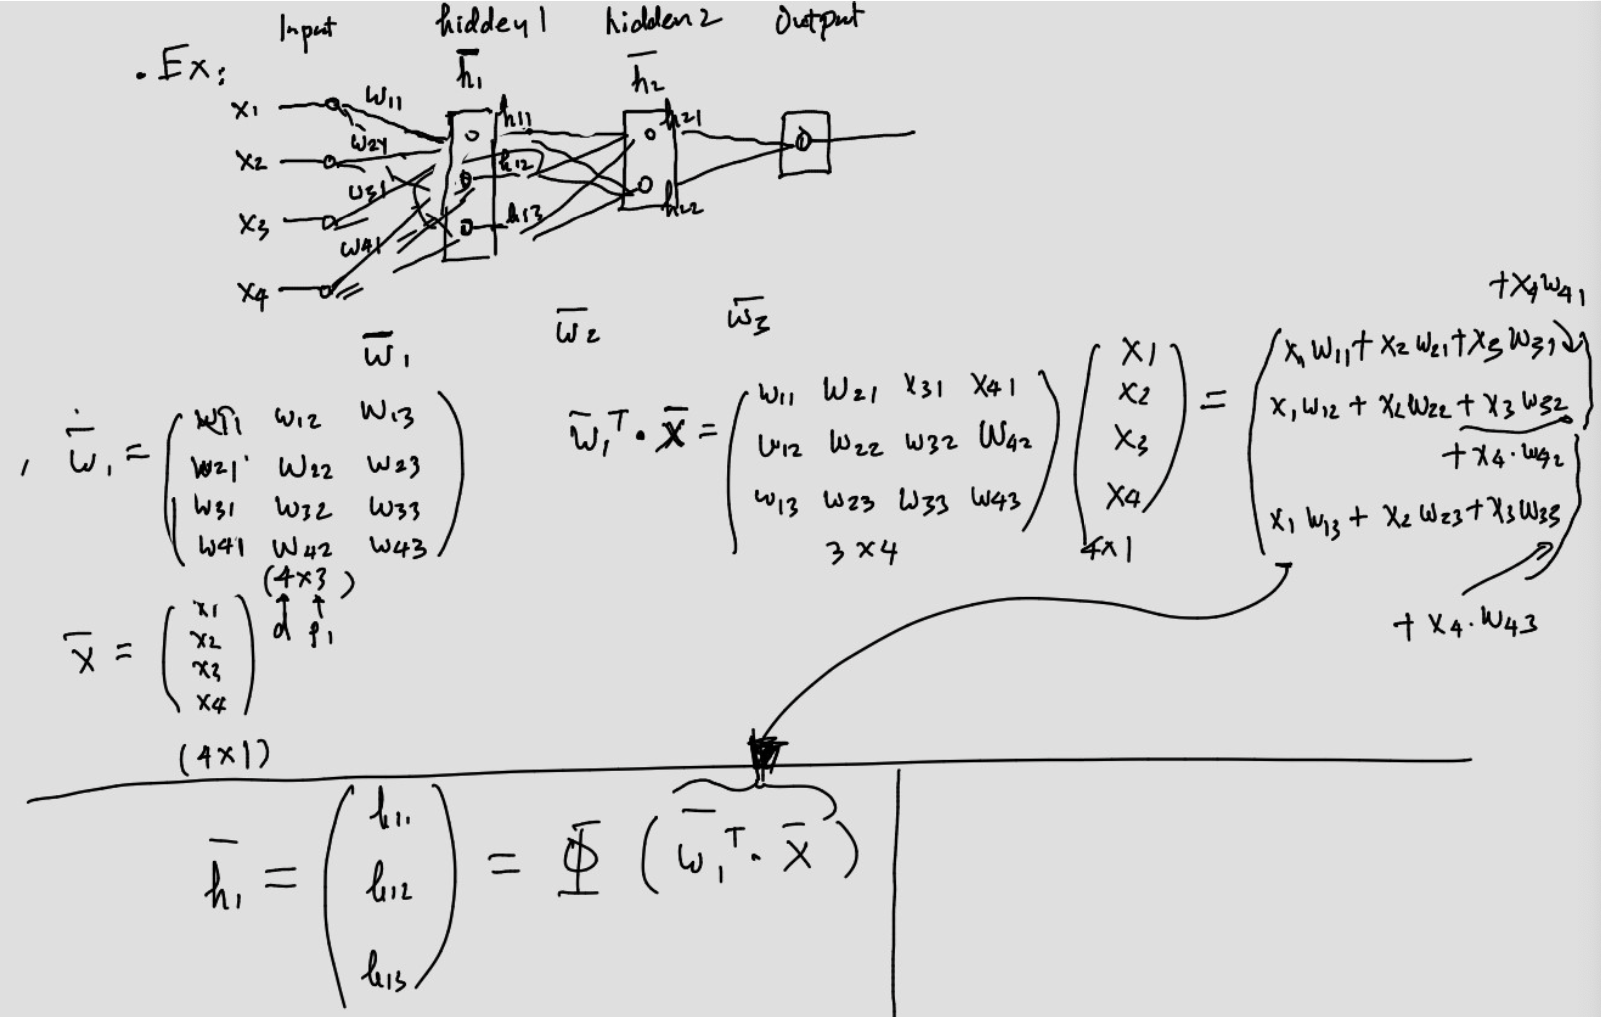 Input hidden 1 hidden 2 Output
. Ex:
h̄₁ h̄₂
x₁ w₁₁ h₁₁ h₂₁
x₂ w₂₁ h₁₂
x₃ w₃₁ h₁₃ h₂₂
x₄ w₄₁
w̄₁ w̄₂ w̄₃
w̄₁ = ( w₁₁ w₁₂ w₁₃
w₂₁ w₂₂ w₂₃
w₃₁ w₃₂ w₃₃
w₄₁ w₄₂ w₄₃ )
(4×3)
d p₁
x̄ = ( x₁
x₂
x₃
x₄ )
(4×1)
w̄₁ᵀ · x̄ = ( w₁₁ w₂₁ x₃₁ x₄₁
w₁₂ w₂₂ w₃₂ w₄₂
w₁₃ w₂₃ w₃₃ w₄₃ )
3×4
( x₁
x₂
x₃
x₄ )
4×1
=
+x₄w₄₁
( x₁w₁₁ + x₂w₂₁ + x₃w₃₁
x₁w₁₂ + x₂w₂₂ + x₃w₃₂
+ x₄·w₄₂
x₁w₁₃ + x₂w₂₃ + x₃w₃₃ )
+ x₄·w₄₃
h̄₁ = ( h₁₁
h₁₂
h₁₃ ) = Φ ( w̄₁ᵀ · x̄ )